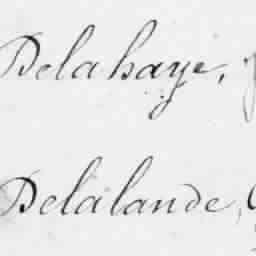 Delahaye,
Delalande,